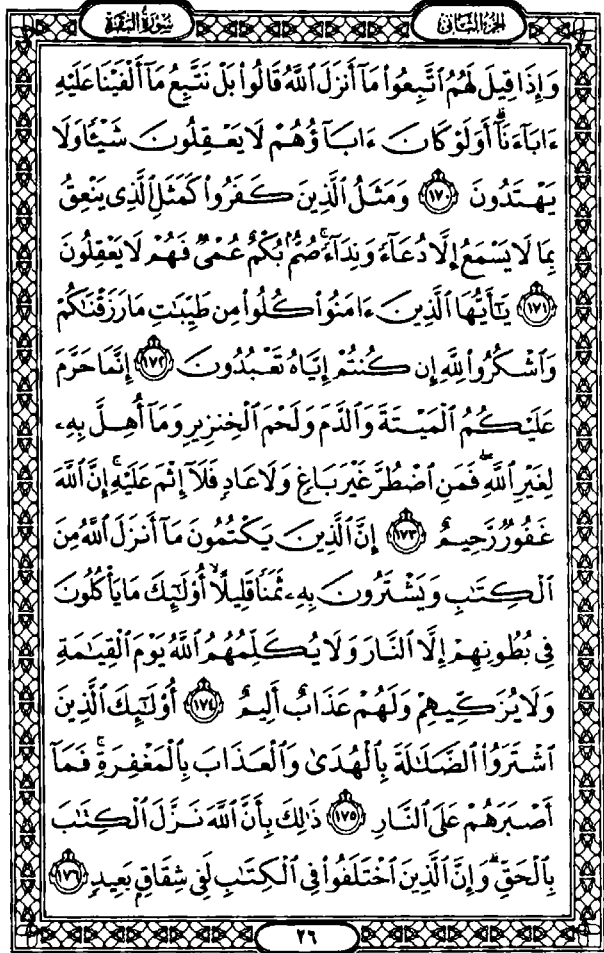 الجزء الثاني سورة البقرة
وَإِذَا قِيلَ لَهُمُ ٱتَّبِعُوا۟ مَآ أَنزَلَ ٱللَّهُ قَالُوا۟ بَلْ نَتَّبِعُ مَآ أَلْفَيْنَا عَلَيْهِ
ءَابَآءَنَآ ۗ أَوَلَوْ كَانَ ءَابَآؤُهُمْ لَا يَعْقِلُونَ شَيْـًٔا وَلَا
يَهْتَدُونَ ﴿١٧٠﴾ وَمَثَلُ ٱلَّذِينَ كَفَرُوا۟ كَمَثَلِ ٱلَّذِى يَنْعِقُ
بِمَا لَا يَسْمَعُ إِلَّا دُعَآءً وَنِدَآءً ۚ صُمٌّۢ بُكْمٌ عُمْىٌ فَهُمْ لَا يَعْقِلُونَ
﴿١٧١﴾ يَـٰٓأَيُّهَا ٱلَّذِينَ ءَامَنُوا۟ كُلُوا۟ مِن طَيِّبَـٰتِ مَا رَزَقْنَـٰكُمْ
وَٱشْكُرُوا۟ لِلَّهِ إِن كُنتُمْ إِيَّاهُ تَعْبُدُونَ ﴿١٧٢﴾ إِنَّمَا حَرَّمَ
عَلَيْكُمُ ٱلْمَيْتَةَ وَٱلدَّمَ وَلَحْمَ ٱلْخِنزِيرِ وَمَآ أُهِلَّ بِهِۦ
لِغَيْرِ ٱللَّهِ ۖ فَمَنِ ٱضْطُرَّ غَيْرَ بَاغٍ وَلَا عَادٍ فَلَآ إِثْمَ عَلَيْهِ ۚ إِنَّ ٱللَّهَ
غَفُورٌ رَّحِيمٌ ﴿١٧٣﴾ إِنَّ ٱلَّذِينَ يَكْتُمُونَ مَآ أَنزَلَ ٱللَّهُ مِنَ
ٱلْكِتَـٰبِ وَيَشْتَرُونَ بِهِۦ ثَمَنًا قَلِيلًا ۙ أُو۟لَـٰٓئِكَ مَا يَأْكُلُونَ
فِى بُطُونِهِمْ إِلَّا ٱلنَّارَ وَلَا يُكَلِّمُهُمُ ٱللَّهُ يَوْمَ ٱلْقِيَـٰمَةِ
وَلَا يُزَكِّيهِمْ وَلَهُمْ عَذَابٌ أَلِيمٌ ﴿١٧٤﴾ أُو۟لَـٰٓئِكَ ٱلَّذِينَ
ٱشْتَرَوُا۟ ٱلضَّلَـٰلَةَ بِٱلْهُدَىٰ وَٱلْعَذَابَ بِٱلْمَغْفِرَةِ ۚ فَمَآ
أَصْبَرَهُمْ عَلَى ٱلنَّارِ ﴿١٧٥﴾ ذَٰلِكَ بِأَنَّ ٱللَّهَ نَزَّلَ ٱلْكِتَـٰبَ
بِٱلْحَقِّ ۗ وَإِنَّ ٱلَّذِينَ ٱخْتَلَفُوا۟ فِى ٱلْكِتَـٰبِ لَفِى شِقَاقٍۭ بَعِيدٍ ﴿١٧٦﴾
٢٦